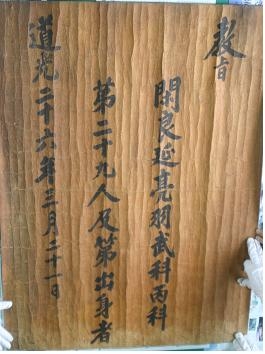 敎旨
閑良延亮羽武科丙科
第二十九人及第出身者
道光二十六年三月二十一日